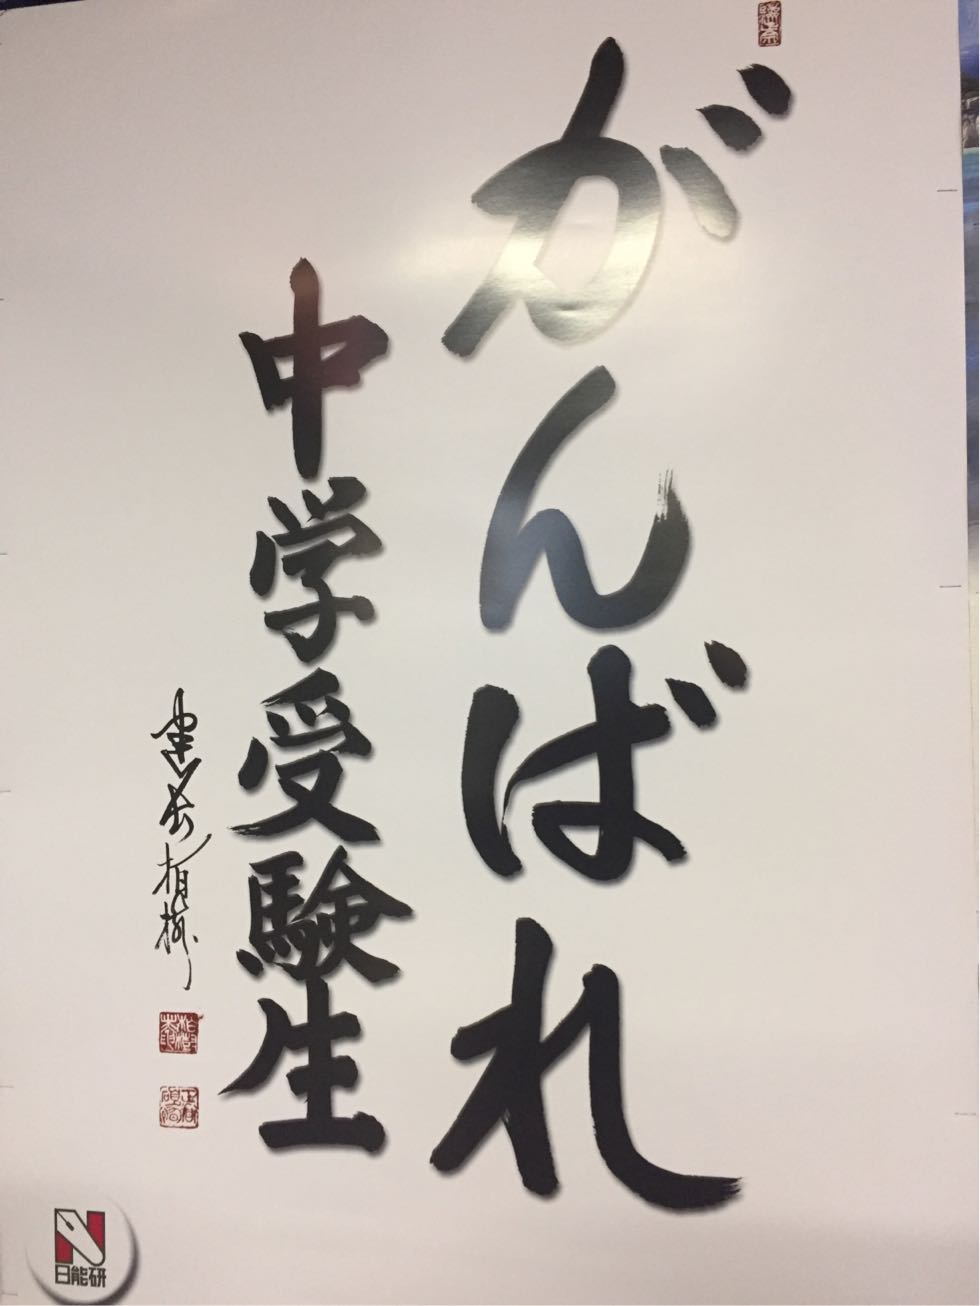 がんばれ
中学受験生
建長
日能研